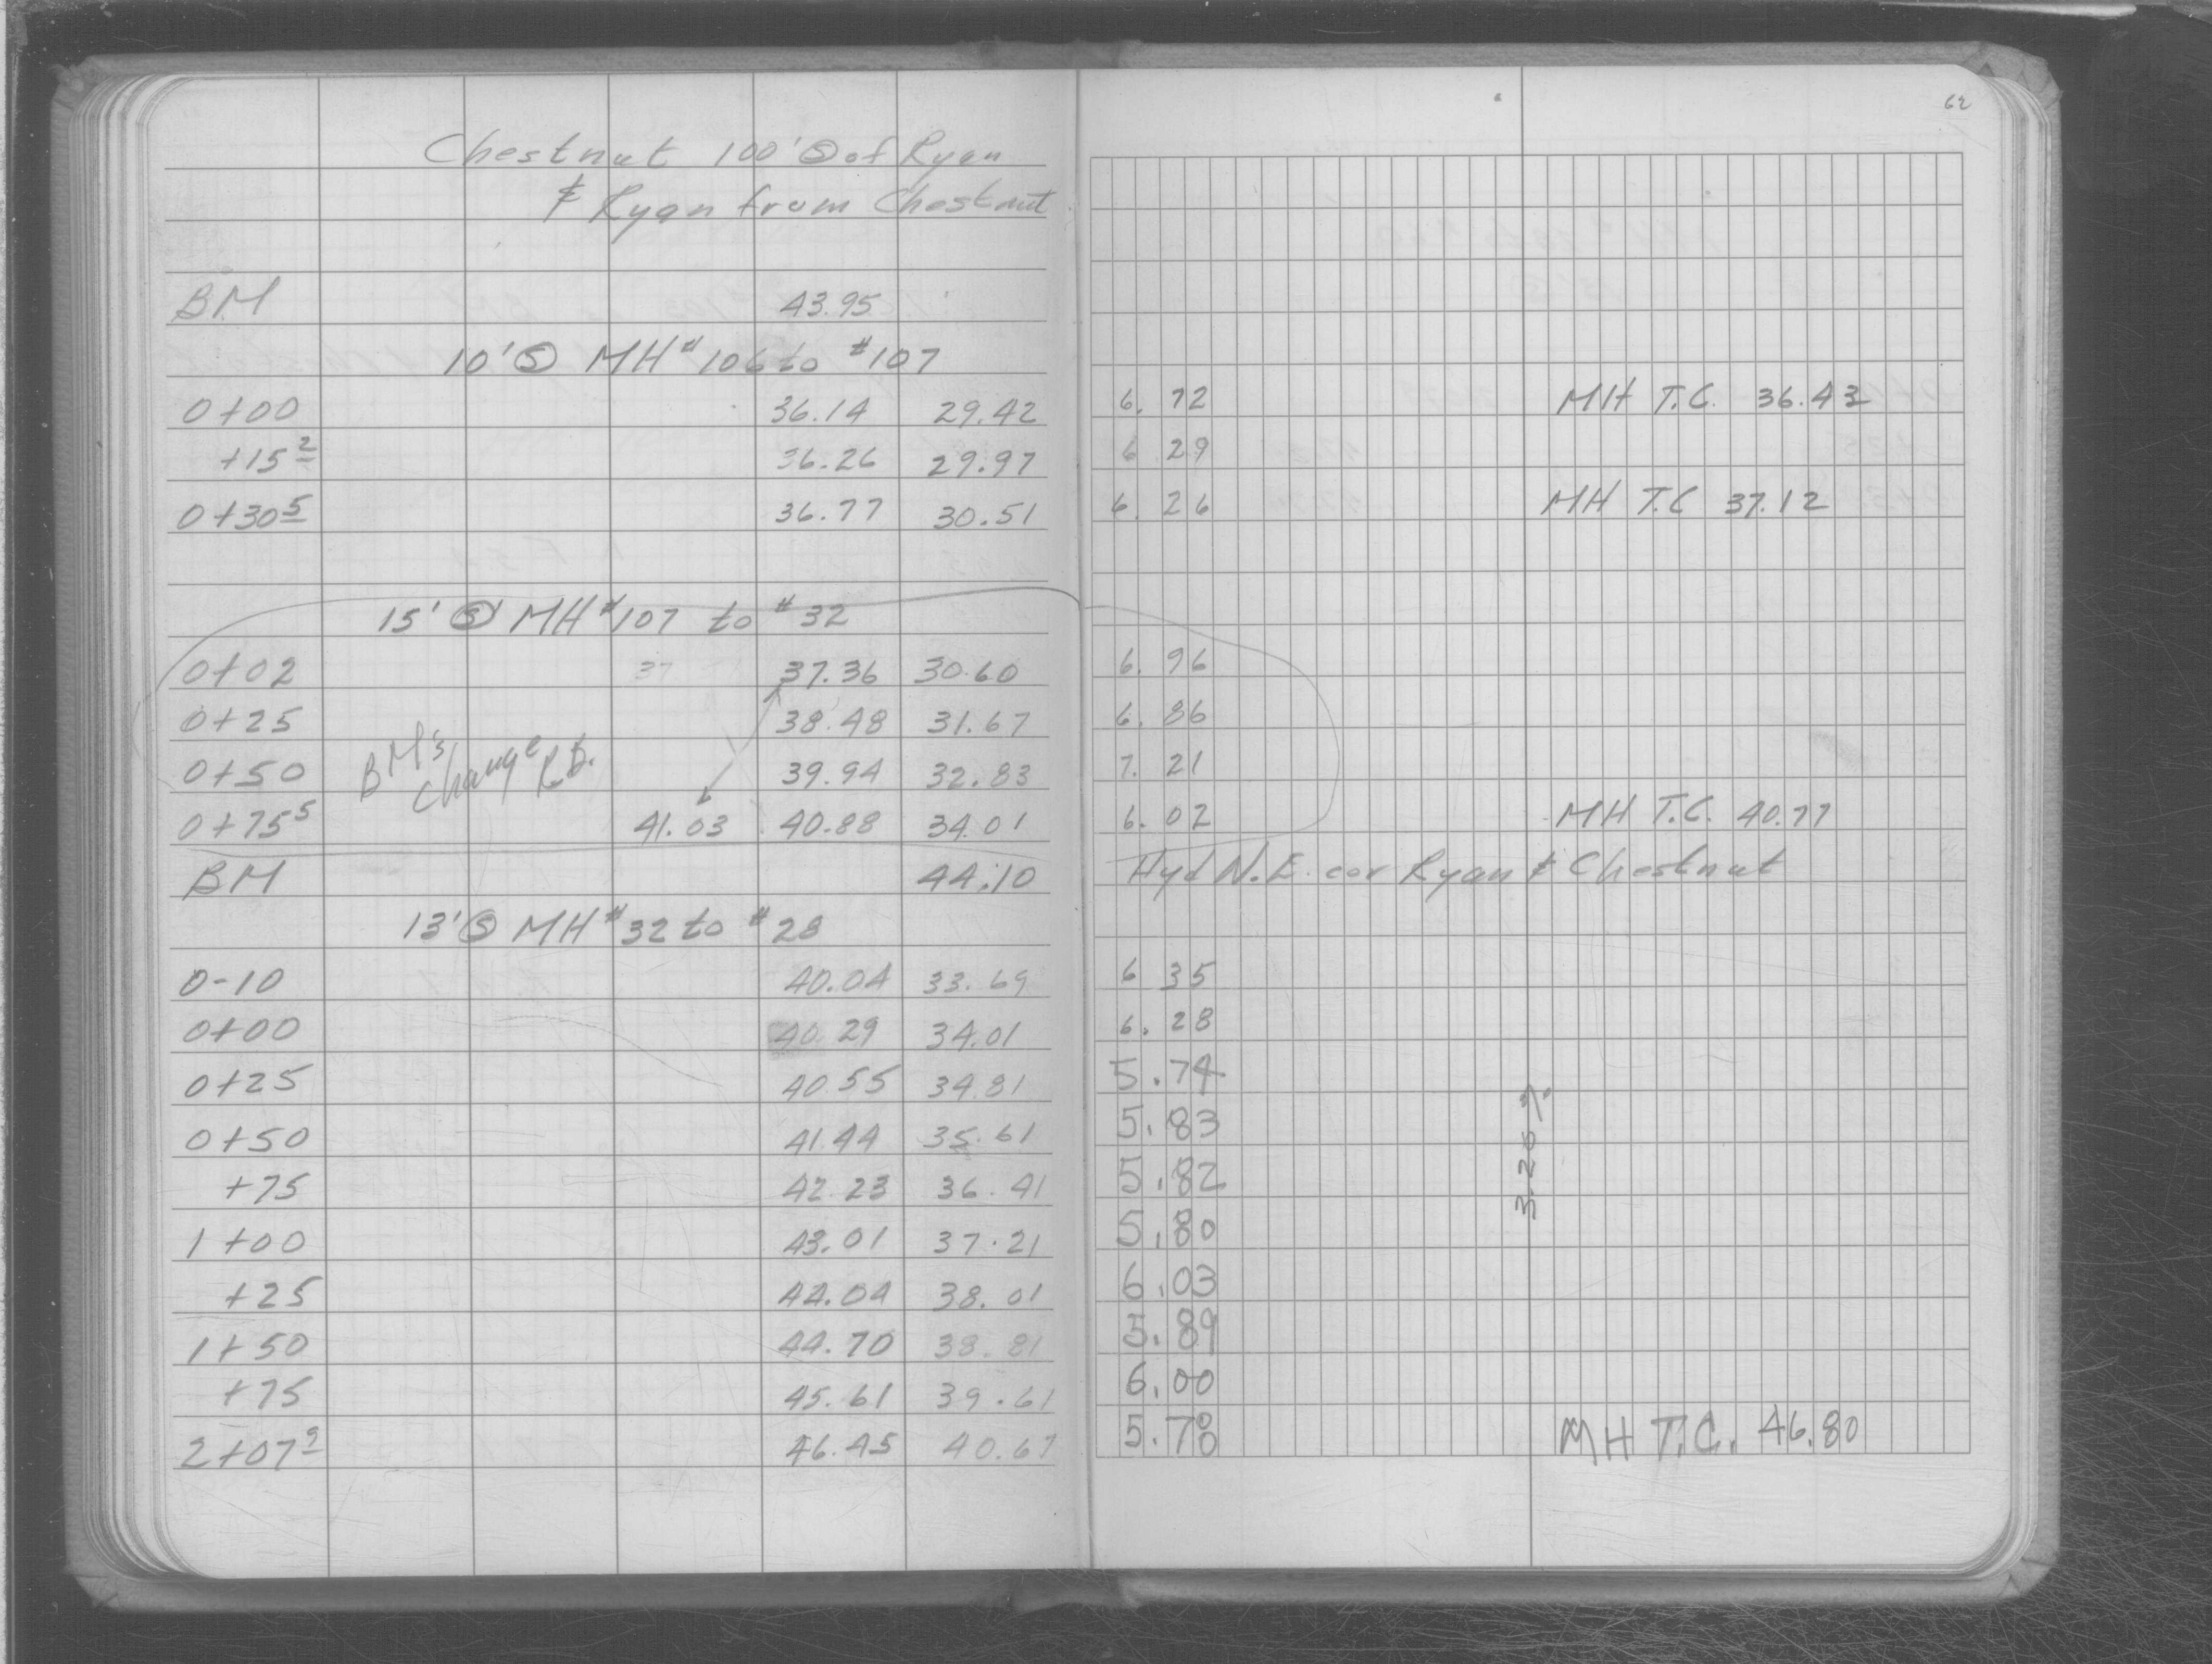 62
Chestnut 100' Ⓢ of Ryan
& Ryan from Chestnut
BM 43.95
10' Ⓢ MH #106 to #107
0+00 36.14 29.42 6.72 MH T.C. 36.43
+15² 36.26 29.97 6 29
0+30⁵ 36.77 30.51 6.26 MH T.C 37.12
15' Ⓢ MH #107 to #32
0+02 37 37.36 30.60 6.96
0+25 38.48 31.67 6.86
0+50 39.94 32.83 7.21
BM's change R.D.
0+75⁵ 41.03 40.88 34.01 6.02 MH T.C. 40.77
BM 44.10 Hyd N.E. cor Ryan & Chestnut
13' Ⓢ MH #32 to #28
0-10 40.04 33.69 6 35
0+00 40.29 34.01 6.28
0+25 40.55 34.81 5.74
0+50 41.44 35.61 5.83
+75 42.23 36.41 5.82
3.20%
1+00 43.01 37.21 5.80
+25 44.04 38.01 6.03
1+50 44.70 38.81 5.89
+75 45.61 39.61 6.00
2+07⁹ 46.45 40.67 5.78 MH T.C. 46.80